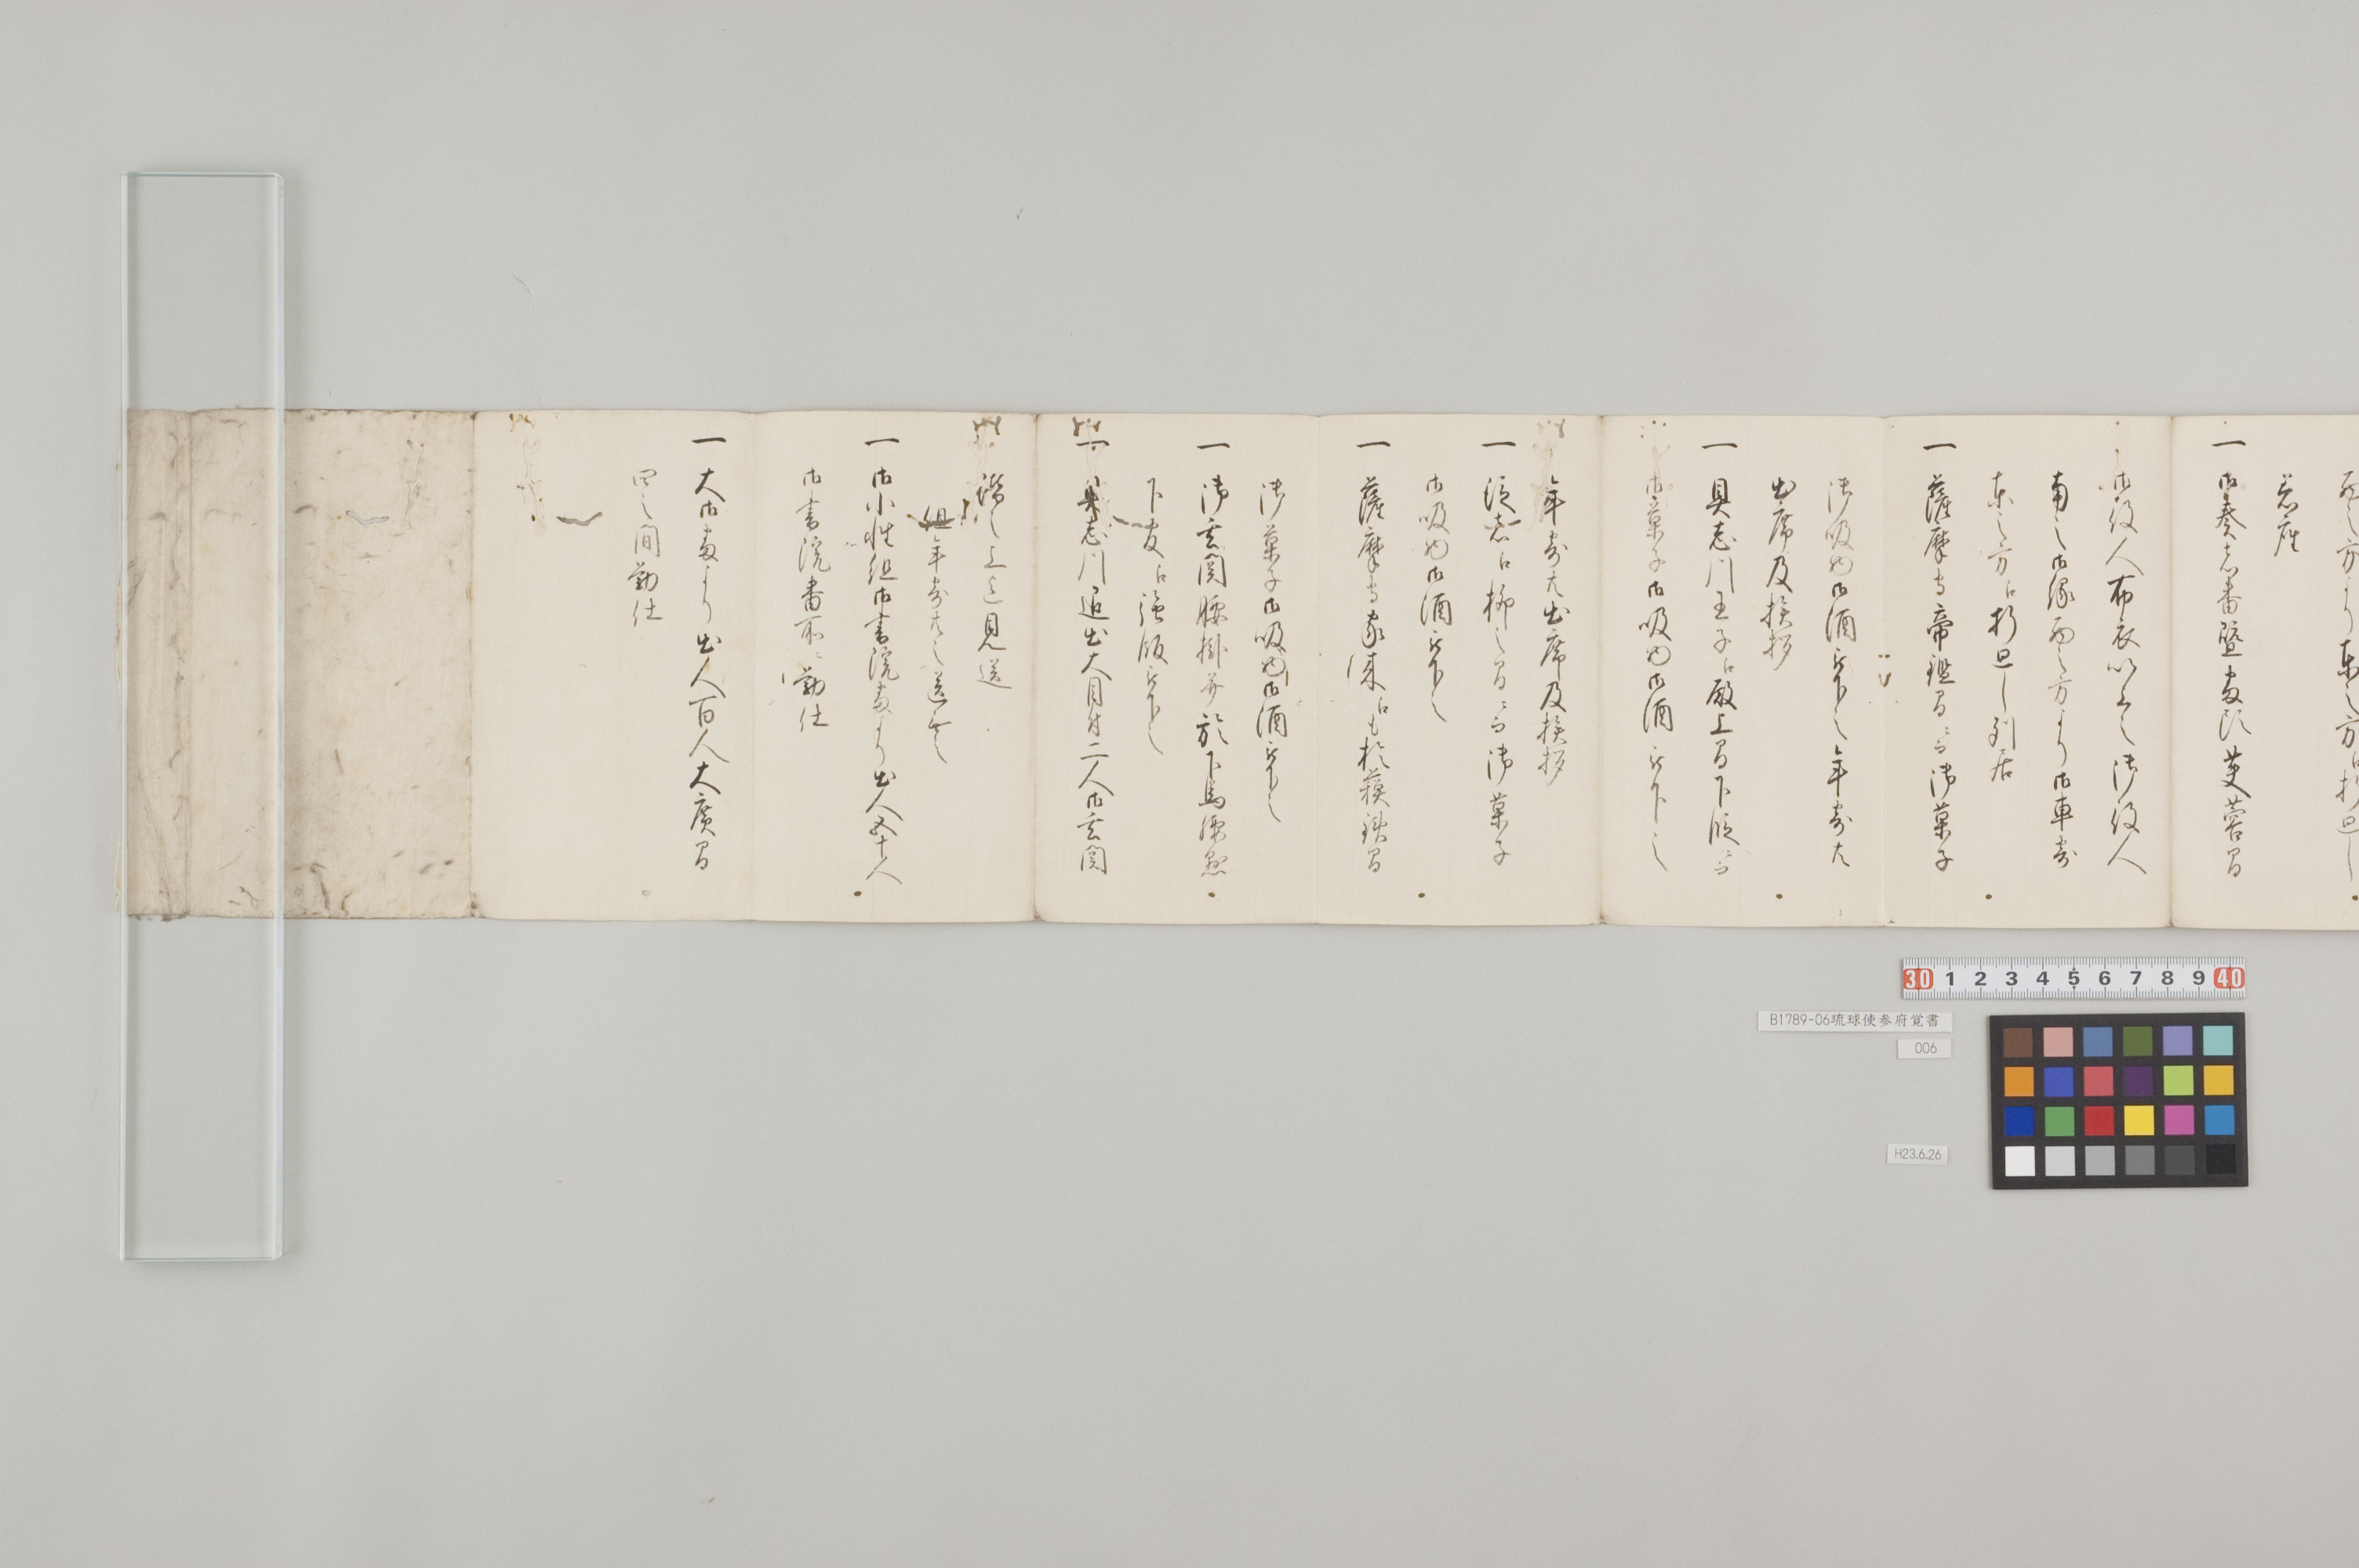 西之方より東之方江折廻し
着座
一 御奏者番暨番頭芙蓉間
御役人布衣以上之御役人
南之御縁西之方より御車寄
東之方江折廻し列居
一 薩摩守帝鑑間ニ而御菓子
御吸物御酒被下之年寄共
出席及挨拶
一 具志川王子江殿上間下段ニ而
御菓子御吸物御酒被下之
年寄共出席及挨拶
一 従者江柳之間ニ而御菓子
御吸物御酒被下之
一 薩摩守家来江も於蘇鉄間
御菓子御吸物御酒被下之
一 御玄関腰掛并於下馬腰懸
下官江強飯被下之
一 具志川退出大目付二人御玄関
階之上迄見送
但年寄共之送無之
一 御小性組御書院番より出人五十人
御書院番所ニ勤仕
一 大御番より出人百人大廣間
四之間勤仕
30 1 2 3 4 5 6 7 8 9 40
B1789-06琉球使参府覚書
006
H23.6.26